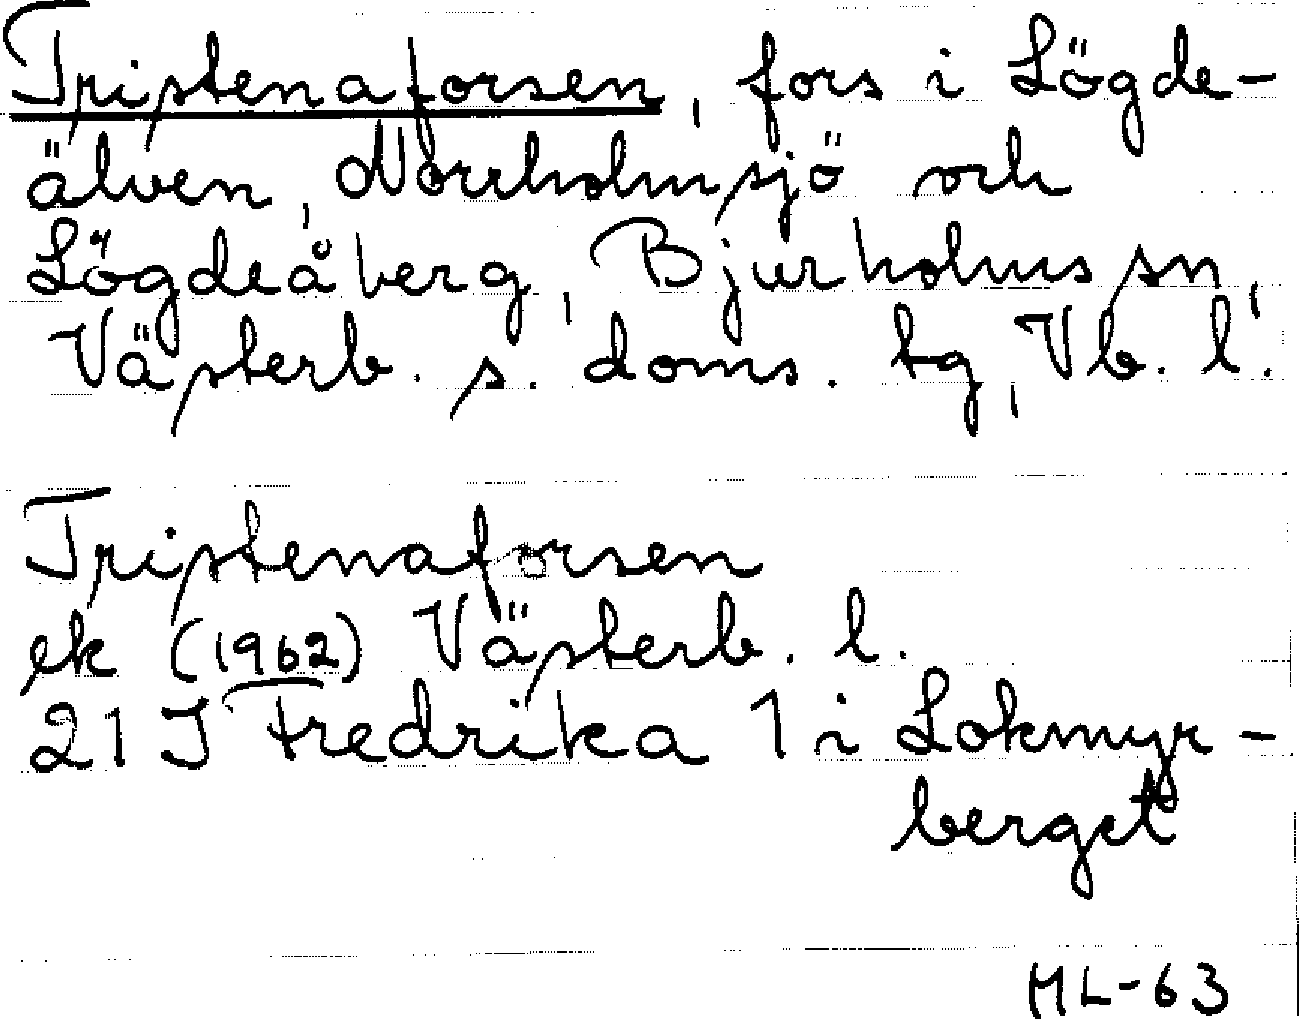 Tristenaforsen, fors i Lögde-
älven, Norrholmsjö och
Lögdeåberg, Bjurholms sn,
Västerb. s. doms. tg, Vb. l.
Tristenaforsen
ek (1962) Västerb. l.
21 J Fredrika 1 i Lokmyr-
berget
ML-63